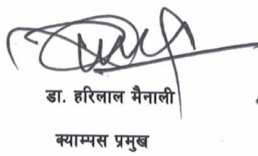 डा. हरिलाल मैनाली
क्याम्पस प्रमुख